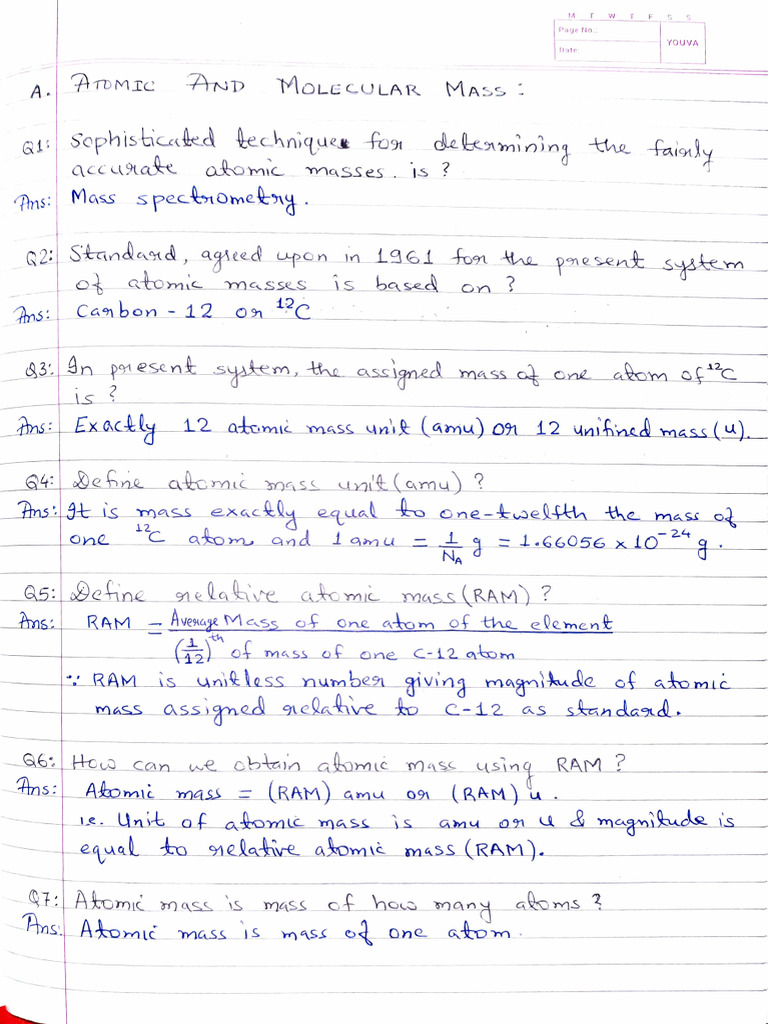 M T W T F S S
Page No.:
YOUVA
Date:
A. ATOMIC AND MOLECULAR MASS:
Q1: Sophisticated technique for determining the fairly
accurate atomic masses. is ?
Ans: Mass spectrometry.
Q2: Standard, agreed upon in 1961 for the present system
of atomic masses is based on ?
Ans: Carbon - 12 or ¹²C
Q3: In present system, the assigned mass of one atom of ¹²C
is ?
Ans: Exactly 12 atomic mass unit (amu) or 12 unifined mass (u).
Q4: Define atomic mass unit (amu) ?
Ans: It is mass exactly equal to one-twelfth the mass of
one ¹²C atom and 1 amu = 1/N_A g = 1.66056 × 10⁻²⁴ g.
Q5: Define relative atomic mass (RAM) ?
Ans: RAM = Average Mass of one atom of the element
(1/12)ᵗʰ of mass of one C-12 atom
∵ RAM is unitless number giving magnitude of atomic
mass assigned relative to C-12 as standard.
Q6: How can we obtain atomic mass using RAM ?
Ans: Atomic mass = (RAM) amu or (RAM) u.
i.e. Unit of atomic mass is amu or u & magnitude is
equal to relative atomic mass (RAM).
Q7: Atomic mass is mass of how many atoms ?
Ans: Atomic mass is mass of one atom.